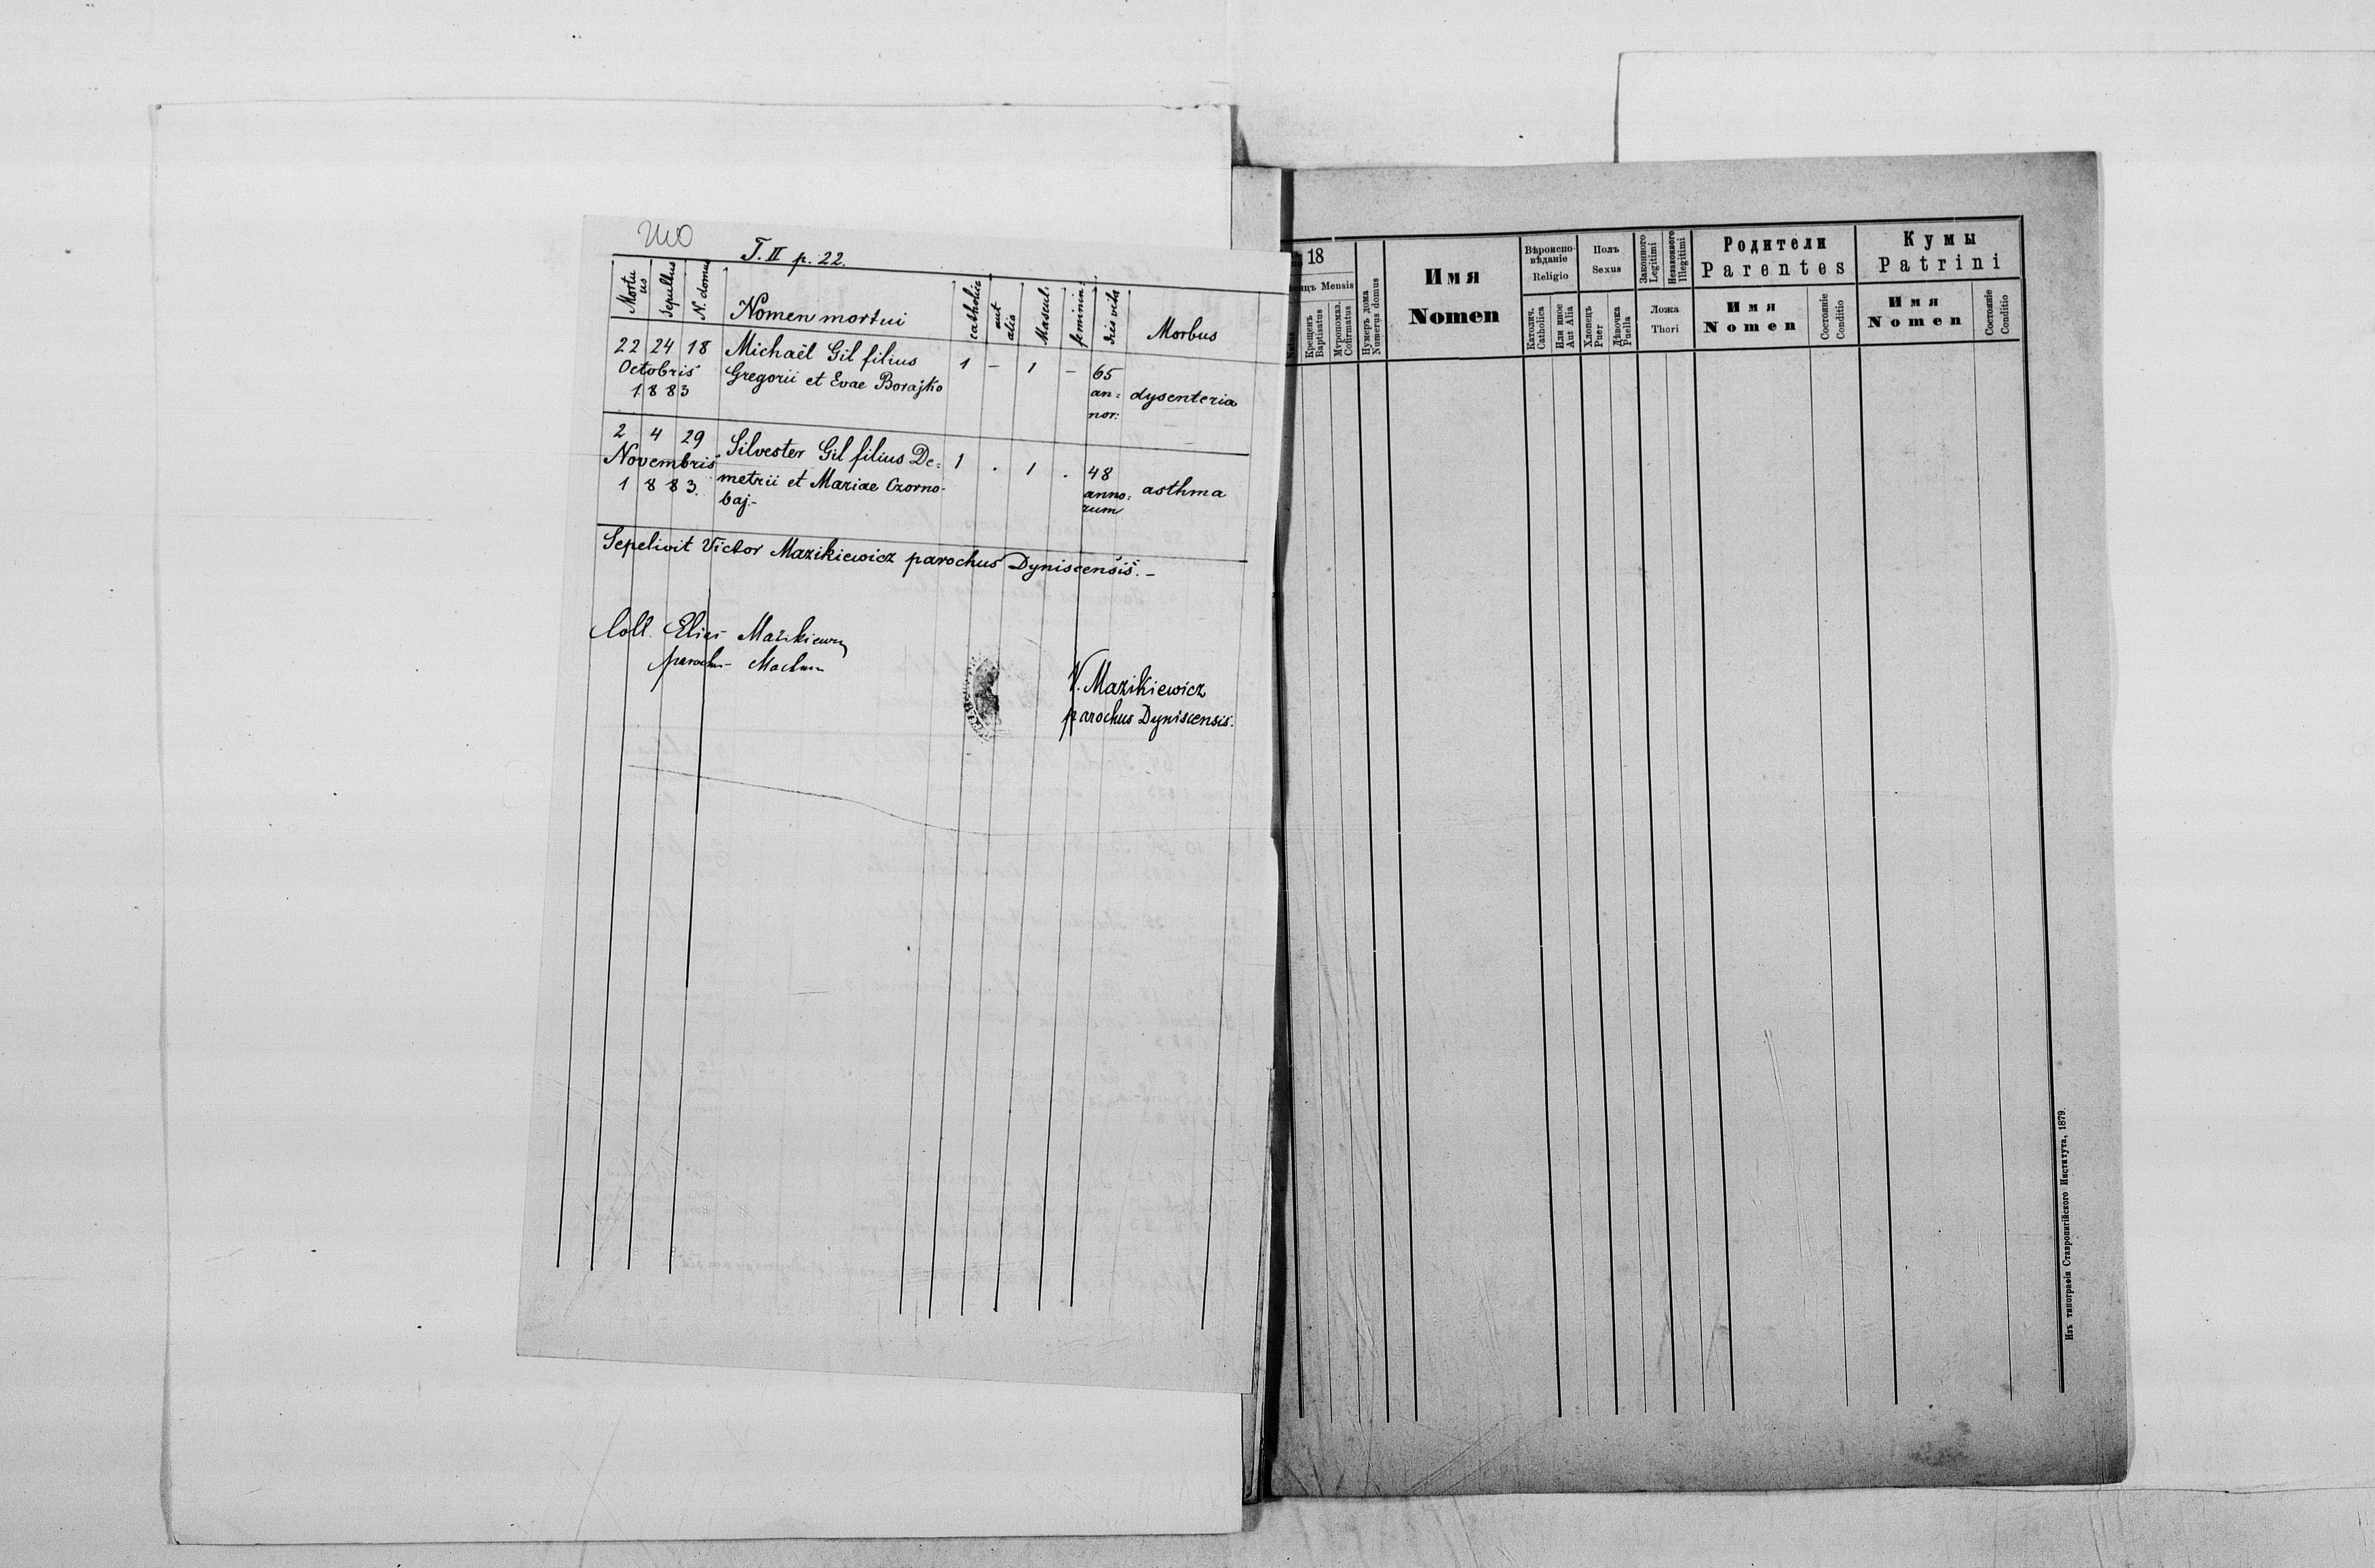 T. II p. 22.
Mortu
us
Sepultus
N. domus
Nomen mortui
catholica
aut
alia
Mascul.
feminin:
dies vitæ
Morbus
22 24 18 Michaël Gil filius 1 – 1 – 65
Octobris Gregorii et Evae Borajko an= dysenteria
1883 nor:
2 4 29 Silvester Gil filius De= 1 . 1 . 48
Novembris metrii et Mariae Czorno- anno= asthma
1883. baj.- rum
Sepelivit Victor Mazikiewicz parochus Dyniscensis. –
Coll. Elias Mazikiewicz
parochus
V. Mazikiewicz
parochus Dyniscensis.
18
Mensis
Natus
Крещенъ
Baptisatus
Мѵропомаз.
Cofirmatus
Нумеръ дома
Numerus domus
Имя
Nomen
Вѣроиспо-
вѣданіе
Religio
Католич.
Catholica
Или иное
Aut Alia
Полъ
Sexus
Хлопецъ
Puer
Дѣвочка
Puella
Законного
Legitimi
Незаконного
Illegitimi
Ложа
Thori
Родители
Parentes
Имя
Nomen
Состояніе
Conditio
Кумы
Patrini
Имя
Nomen
Состояніе
Conditio
Изъ типографіи Ставропигійского Института, 1879.